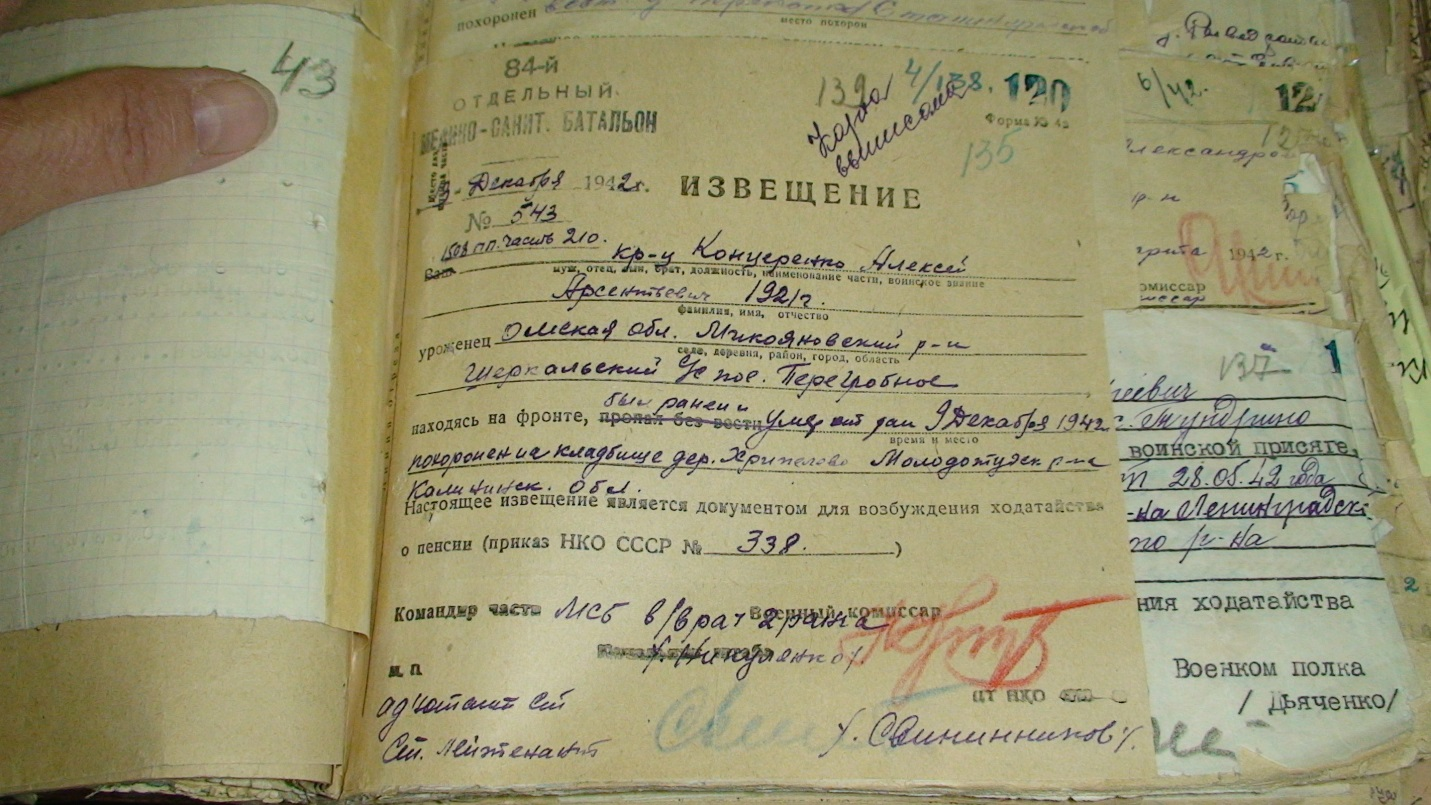 43
похоронен
место похорон
84-й
ОТДЕЛЬНЫЙ
МЕДИКО-САНИТ. БАТАЛЬОН
139 4/138. 120
Карта
выписана
Форма № 4
135
Декабря 1942 г.
ИЗВЕЩЕНИЕ
№ 543
1508 п.п. часть 210.
Ваш кр-ц Концеренко Алексей
муж, отец, сын, брат, должность, наименование части, воинское звание
Арсентьевич 1921 г.
фамилия, имя, отчество
уроженец Омская обл. Микояновский р-н
село, деревня, район, город, область
Шеркальский с пос. Перегробное
был ранен и
находясь на фронте, пропал без вести умер от ран 9 Декабря 1942 г.
время и место
похоронен на кладбище дер. Хрипелево Молодотудск р-на
Калининск. Обл.
Настоящее извещение является документом для возбуждения ходатайства
о пенсии (приказ НКО СССР № 338. )
Командир части МСБ в/врач 2 ранга Военный комиссар
/. Никуленко /.
М. П.
ЦТ НКО
адъютант ст
Ст. лейтенант /. Свининников /.
6/42.
12
Александро
р-н
1942 г.
омиссар
137
1
еевич
с. Жундрино
воинской присяге,
28.05.42 года
-на Ленинградск
р-на
ния ходатайства
Военком полка
/ Дьяченко/